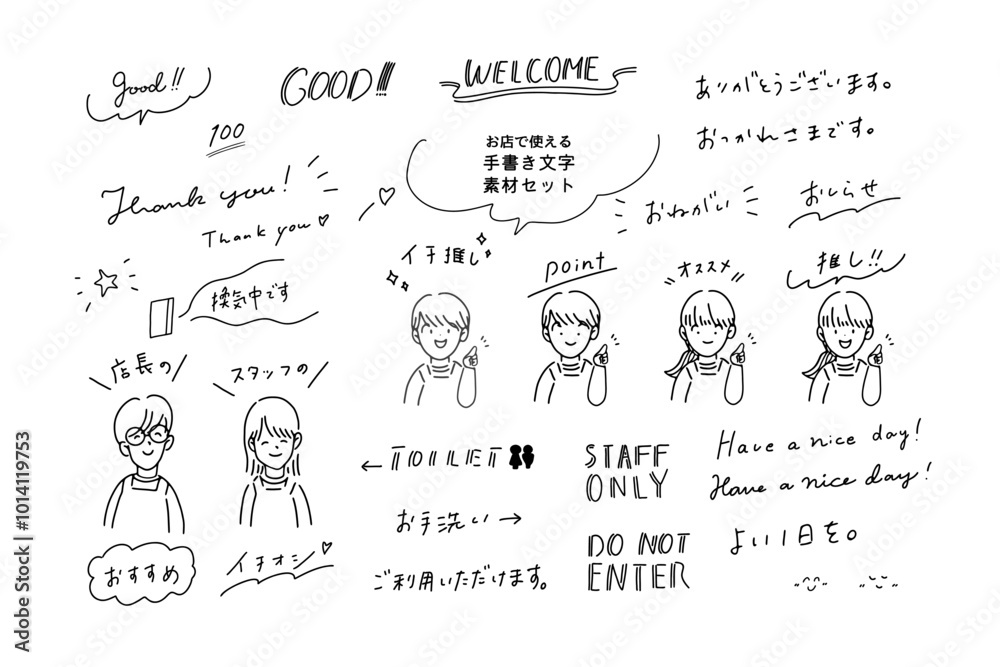 Good!!
GOOD!!!
WELCOME
ありがとうございます。
100
お店で使える
手書き文字
素材セット
おつかれさまです。
Thank you!
Thank you
おねがい
おしらせ
イチ推し
point
オススメ
推し!!
換気中です
店長の
スタッフの
おすすめ
イチオシ
← TOILET
お手洗い →
ご利用いただけます。
STAFF
ONLY
DO NOT
ENTER
Have a nice day!
Have a nice day!
よい1日を。
Adobe Stock | #1014119753